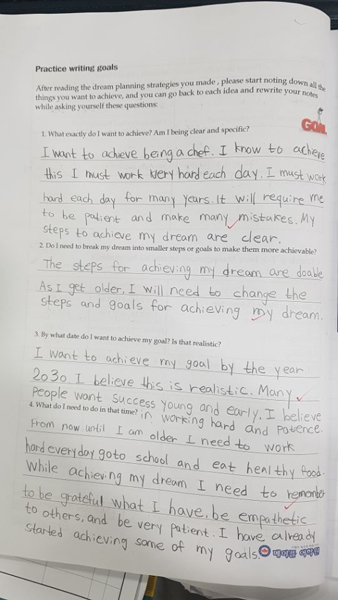 Practice writing goals
After reading the dream planning strategies you made, please start noting down all the
things you want to achieve, and you can go back to each idea and rewrite your notes
while asking yourself these questions:
GOAL
1. What exactly do I want to achieve? Am I being clear and specific?
I want to achieve being a chef. I know to achieve
this I must work very hard each day. I must work
hard each day for many years. It will require me
to be patient and make many mistakes. My
steps to achieve my dream are clear.
2. Do I need to break my dream into smaller steps or goals to make them more achievable?
The steps for achieving my dream are doable
As I get older. I will need to change the
steps and goals for achieving my dream.
3. By what date do I want to achieve my goal? Is that realistic?
I want to achieve my goal by the year
2030 I believe this is realistic. Many
People want success young and early. I believe
in working hard and patience.
4. What do I need to do in that time?
From now until I am older I need to work
hard everyday goto school and eat healthy food.
While achieving my dream I need to remember
to be grateful what I have, be empathetic
to others, and be very patient. I have already
started achieving some of my goals.